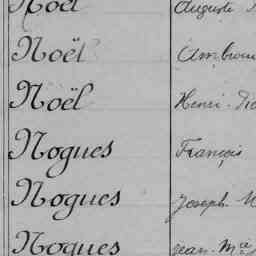 Noël Auguste
Noël
Noël Henri
Nogues François
Nogues Joseph
Nogues Jean Mie